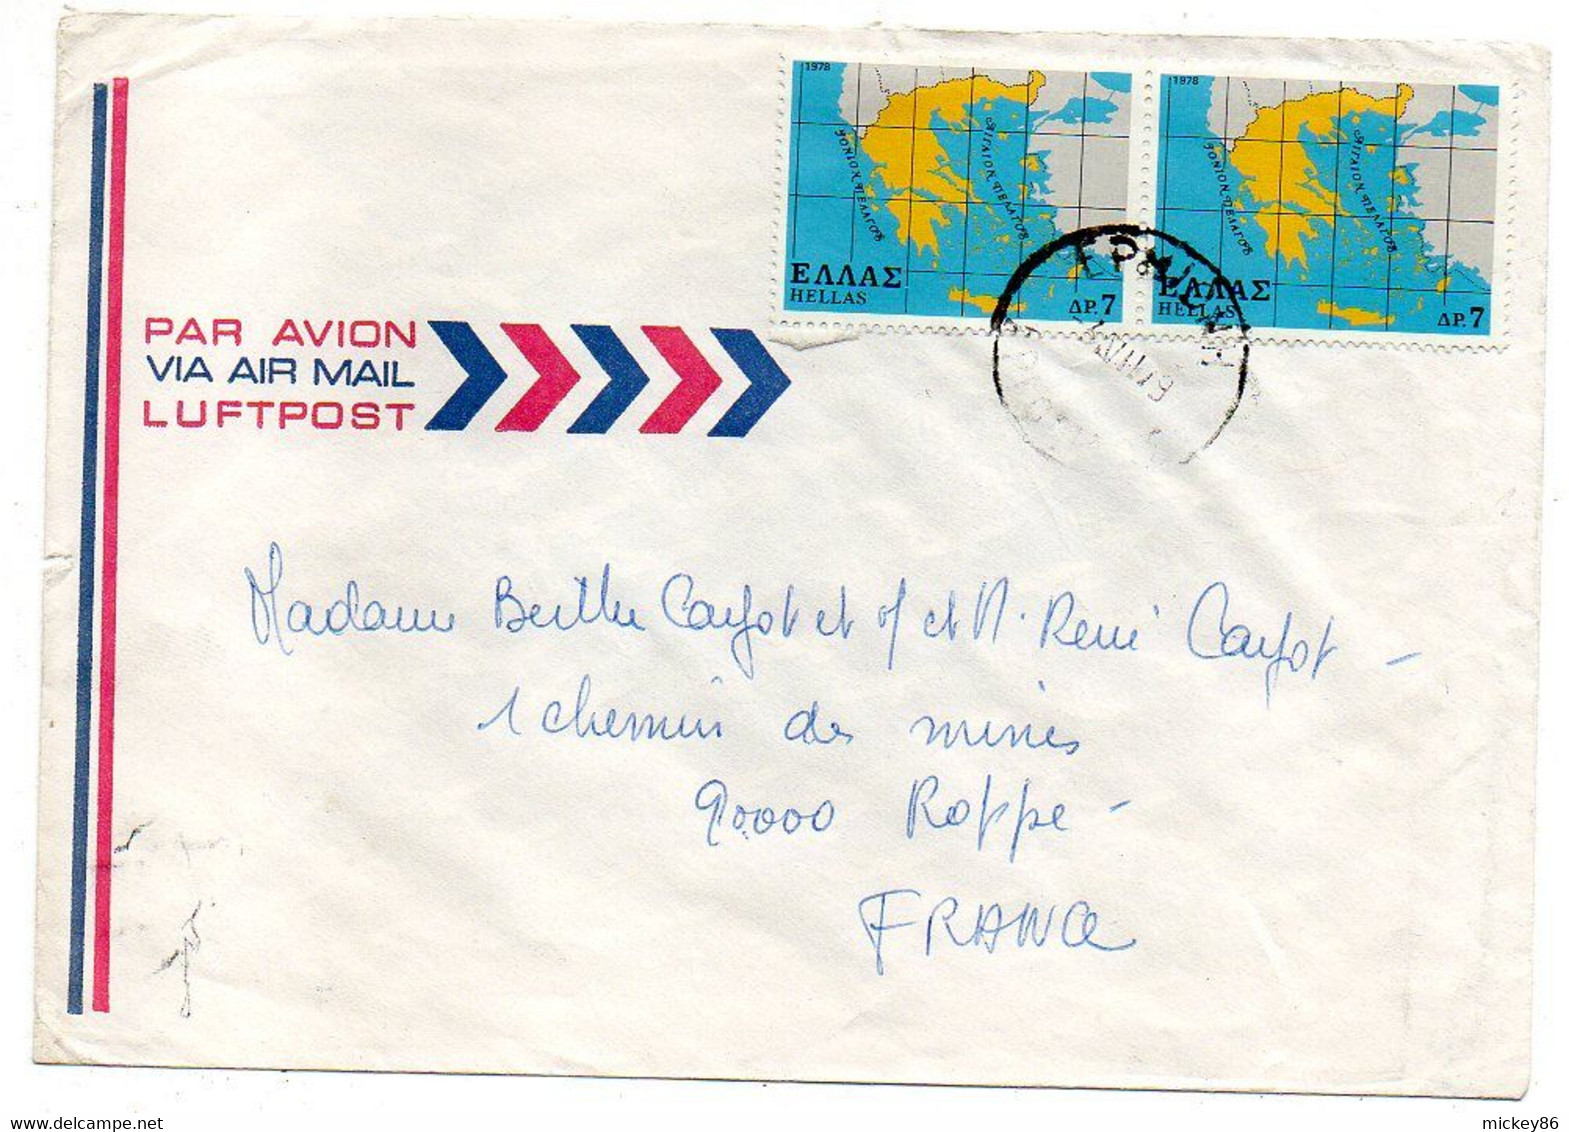 1978
ΙΟΝΙΟΝ ΠΕΛΑΓΟΣ
ΑΙΓΑΙΟΝ ΠΕΛΑΓΟΣ
ΕΛΛΑΣ
HELLAS
ΔΡ.7
1978
ΙΟΝΙΟΝ ΠΕΛΑΓΟΣ
ΑΙΓΑΙΟΝ ΠΕΛΑΓΟΣ
ΕΛΛΑΣ
HELLAS
ΔΡ.7
PAR AVION
VIA AIR MAIL
LUFTPOST
Madame Berthe Cayot et et M. René Cayot -
1 chemin des mines
90000 Roppe -
FRANCE
www.delcampe.net
mickey86